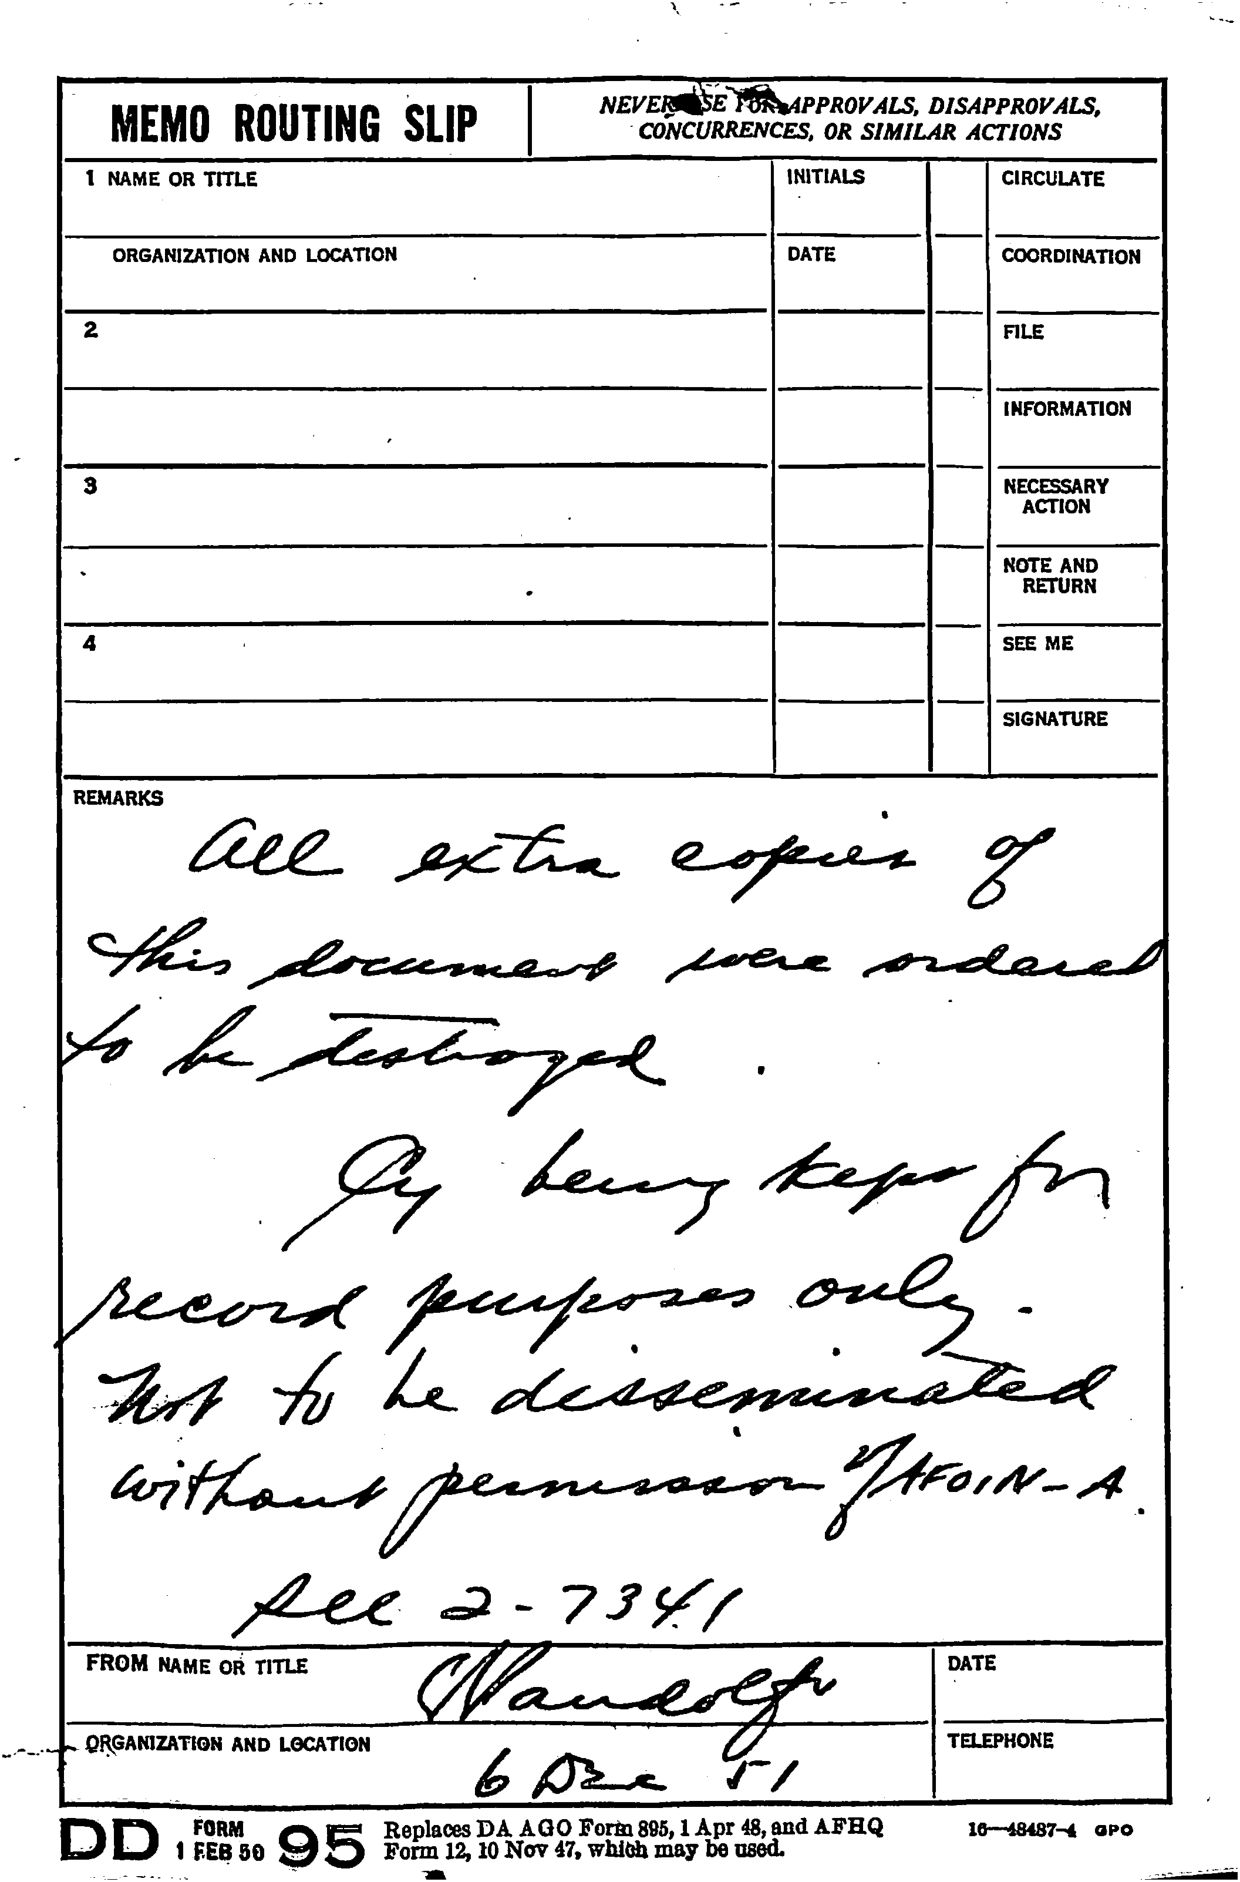 MEMO ROUTING SLIP
NEVER USE FOR APPROVALS, DISAPPROVALS,
CONCURRENCES, OR SIMILAR ACTIONS
1 NAME OR TITLE
INITIALS
CIRCULATE
ORGANIZATION AND LOCATION
DATE
COORDINATION
2
FILE
INFORMATION
3
NECESSARY
ACTION
NOTE AND
RETURN
4
SEE ME
SIGNATURE
REMARKS
All extra copies of
this document were ordered
to be destroyed.
Cy being kept for
record purposes only.
Not to be disseminated
without permission of AFOIN-A.
See 2-7341
FROM NAME OR TITLE
DATE
ORGANIZATION AND LOCATION
TELEPHONE
6 Dec 51
DD FORM 1 FEB 50 95
Replaces DA AGO Form 895, 1 Apr 48, and AFHQ
Form 12, 10 Nov 47, which may be used.
16—48487-4 GPO